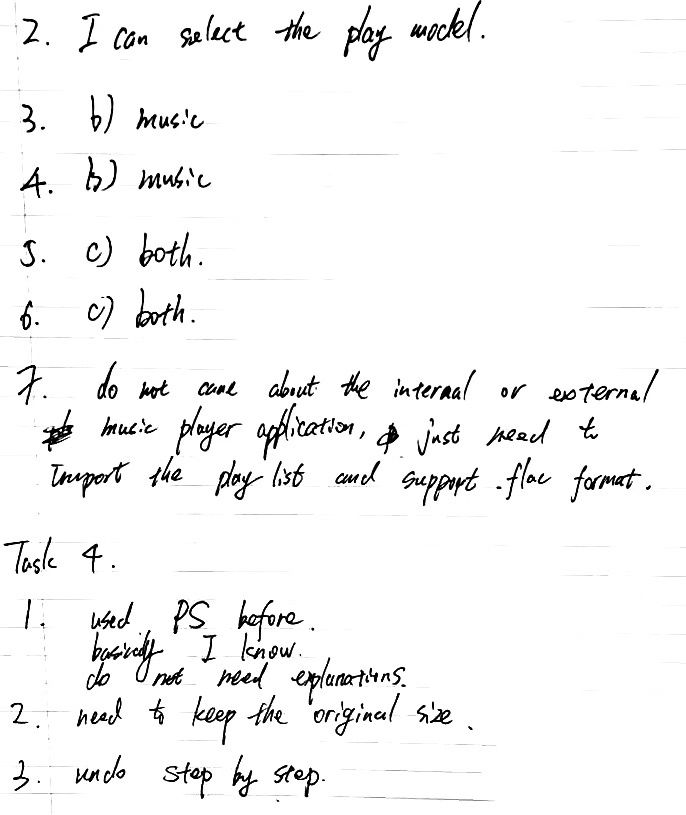 2. I can select the play model.
3. b) music
4. b) music
5. c) both.
6. c) both.
7. do not care about the internal or external
music player application, just need to
Import the play list and support .flac format.
Task 4.
1. used PS before.
basically I know.
do not need explanations.
2. need to keep the original size.
3. undo step by step.